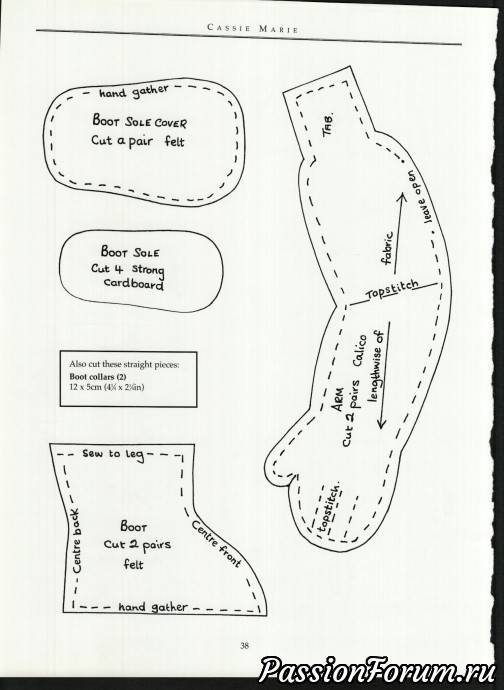 CASSIE MARIE
hand gather
BOOT SOLE COVER
Cut a pair felt
BOOT SOLE
Cut 4 strong
cardboard
Also cut these straight pieces:
Boot collars (2)
12 x 5cm (4¾ x 2in)
Sew to leg
Centre back
BOOT
Cut 2 pairs
felt
Centre front
hand gather
TAB.
leave open
fabric
Topstitch
ARM
Cut 2 pairs Calico
lengthwise of
topstitch.
38
PassionForum.ru